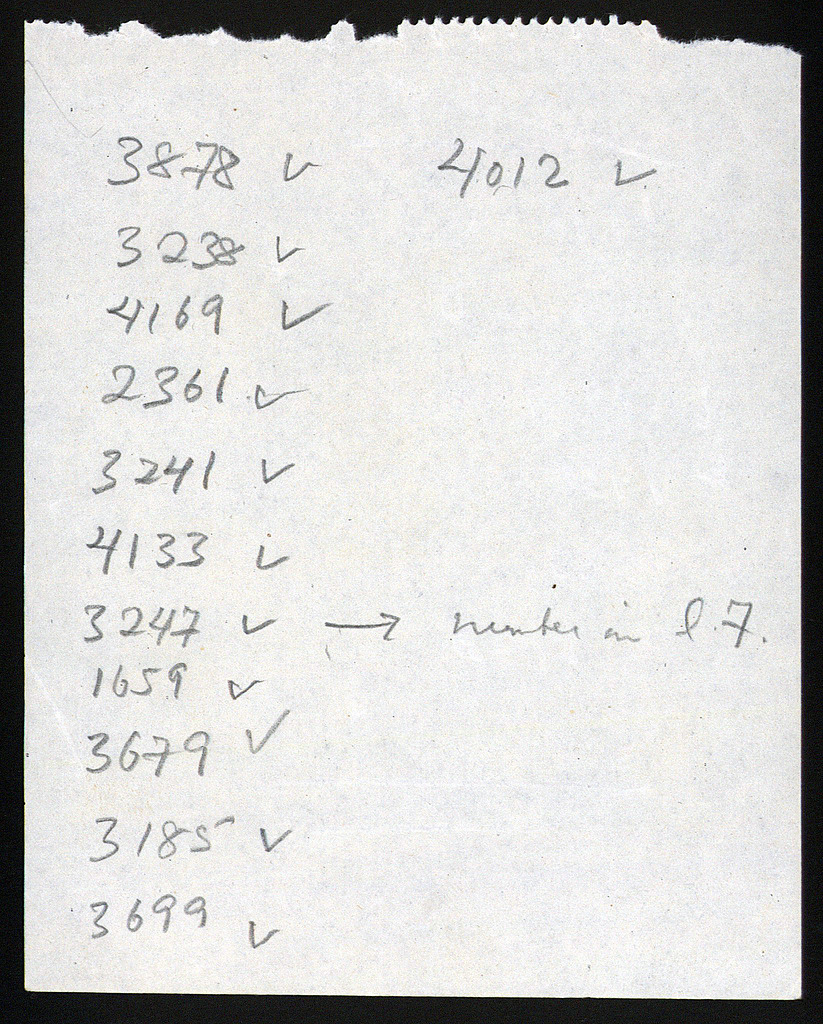 3878 ✓ 4012 ✓
3238 ✓
4169 ✓
2361 ✓
3241 ✓
4133 ✓
3247 ✓ → number in l.7.
1659 ✓
3679 ✓
3185 ✓
3699 ✓